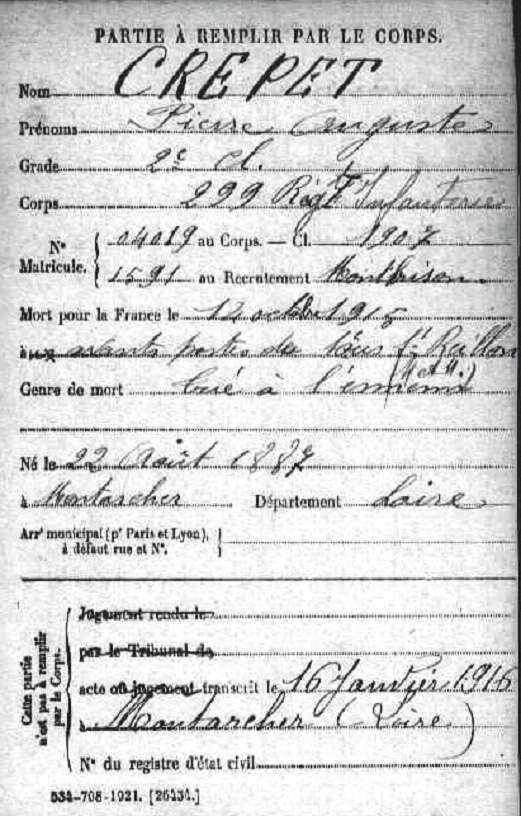 PARTIE À REMPLIR PAR LE CORPS.
Nom CREPET
Prénoms Pierre Auguste
Grade 2e Cl.
Corps 299 Régt Infanterie
N° Matricule. { 04019 au Corps. — Cl. 1907
1591 au Recrutement Montbrison
Mort pour la France le 12 octobre 1915
aux avants postes du bois
(M et M.)
Genre de mort tué à l'ennemi
Né le 22 Août 1887
à Montarcher Département Loire
Arrt municipal (pr Paris et Lyon), à défaut rue et N°.
Cette partie n'est pas à remplir par le Corps.
Jugement rendu le
par le Tribunal de
acte ou jugement transcrit le 16 Janvier 1916
à Montarcher (Loire)
N° du registre d'état civil
534-708-1921. [26434.]